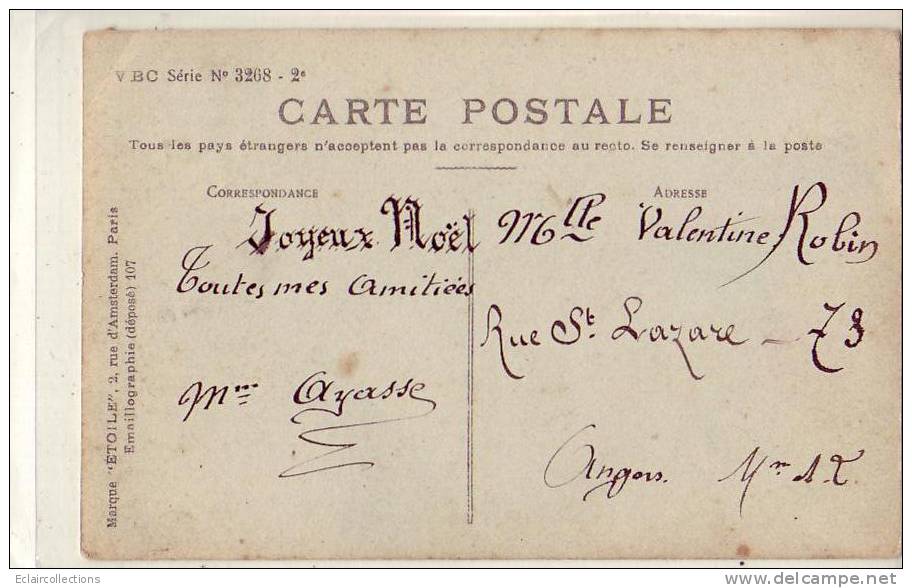 VBC Série Nº 3268 - 2e
CARTE POSTALE
Tous les pays étrangers n'acceptent pas la correspondance au recto. Se renseigner à la poste
CORRESPONDANCE
Joyeux Noël
Toutes mes amitiées
Mme Ayasse
ADRESSE
Mlle Valentine Robin
Rue St. Lazare - 73
Angers. M et L
Marque "ETOILE", 2, rue d'Amsterdam. Paris
Emaillographie (déposé) 107
Eclaircollections
www.delcampe.net